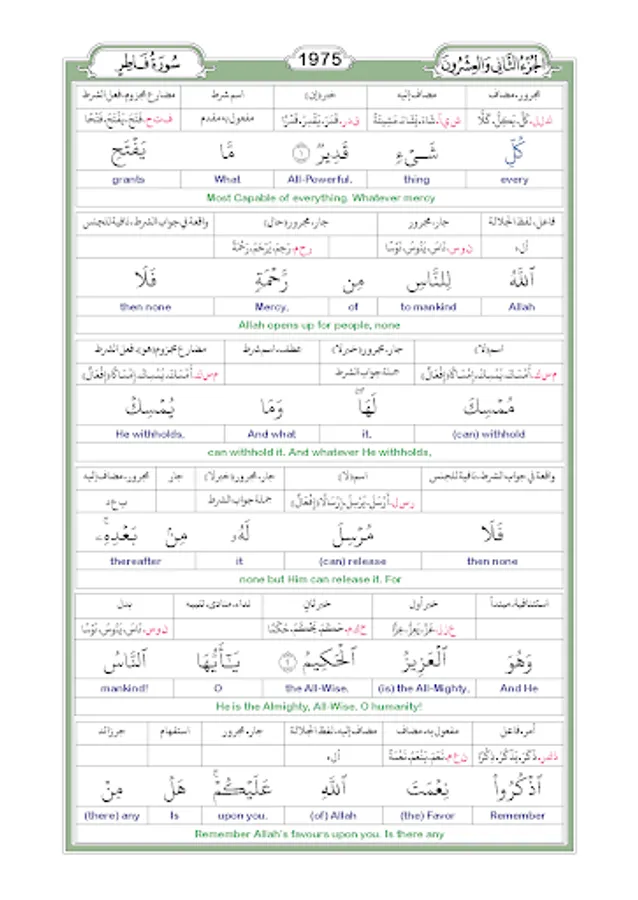 الجُزءُ الثَّانِي وَالعِشْرُونَ 1975 سُورَةُ فَاطِرٍ
مجرور، مضاف مضاف إليه خبر(إن) اسم شرط مضارع مجزوم، فعل الشرط
مفعول به مقدم
كُلِّ شَىْءٍ قَدِيرٌ ١ مَّا يَفْتَحِ
every thing All-Powerful. What grants
Most Capable of everything. Whatever mercy
فاعل، لفظ الجلالة جار، مجرور جار، مجرور(حال) واقعة في جواب الشرط، نافية للجنس
ٱللَّهُ لِلنَّاسِ مِن رَّحْمَةٍ فَلَا
Allah to mankind of Mercy, then none
Allah opens up for people, none
اسم(لا) جار، مجرور(خبر لا) عطف، اسم شرط مضارع مجزوم(هو)، فعل الشرط
جملة جواب الشرط
مُمْسِكَ لَهَا ۖ وَمَا يُمْسِكْ
(can) withhold it. And what He withholds,
can withhold it. And whatever He withholds,
واقعة في جواب الشرط، نافية للجنس اسم(لا) جار، مجرور(خبر لا) جار مجرور، مضاف إليه
جملة جواب الشرط ب ع د
فَلَا مُرْسِلَ لَهُۥ مِنۢ بَعْدِهِۦ ۚ
then none (can) release it thereafter
none but Him can release it. For
استئنافية، مبتدأ خبر أول خبر ثان نداء، منادى، تنبيه بدل
وَهُوَ ٱلْعَزِيزُ ٱلْحَكِيمُ ٢ يَـٰٓأَيُّهَا ٱلنَّاسُ
And He (is) the All-Mighty, the All-Wise. O mankind!
He is the Almighty, All-Wise. O humanity!
أمر، فاعل مفعول به، مضاف مضاف إليه، لفظ الجلالة جار، مجرور استفهام جر زائد
ٱذْكُرُوا۟ نِعْمَتَ ٱللَّهِ عَلَيْكُمْ ۚ هَلْ مِنْ
Remember (the) Favor (of) Allah upon you. Is (there) any
Remember Allah's favours upon you. Is there any